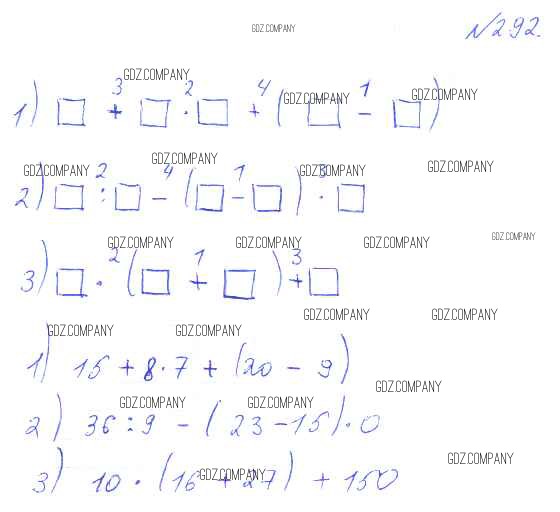 GDZ.COMPANY
№292.
GDZ.COMPANY
3 2 4 1
GDZ.COMPANY GDZ.COMPANY
1) □ + □ · □ + (□ - □)
GDZ.COMPANY GDZ.COMPANY GDZ.COMPANY GDZ.COMPANY
2 4 1 3
2) □ : □ - (□ - □) · □
GDZ.COMPANY GDZ.COMPANY GDZ.COMPANY GDZ.COMPANY
2 1 3
3) □ · (□ + □) + □
GDZ.COMPANY GDZ.COMPANY
GDZ.COMPANY GDZ.COMPANY
1) 15 + 8 · 7 + (20 - 9)
GDZ.COMPANY
GDZ.COMPANY GDZ.COMPANY
2) 36 : 9 - (23 - 15) · 0
GDZ.COMPANY
GDZ.COMPANY
3) 10 · (16 + 27) + 150